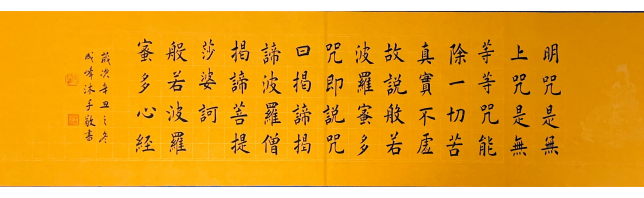 明咒是無
上咒是無
等等咒能
除一切苦
真實不虛
故説般若
波羅蜜多
咒即説咒
曰揭諦揭
諦波羅僧
揭諦菩提
莎婆訶
般若波羅
蜜多心経
歲次辛丑之冬
沐手敬書